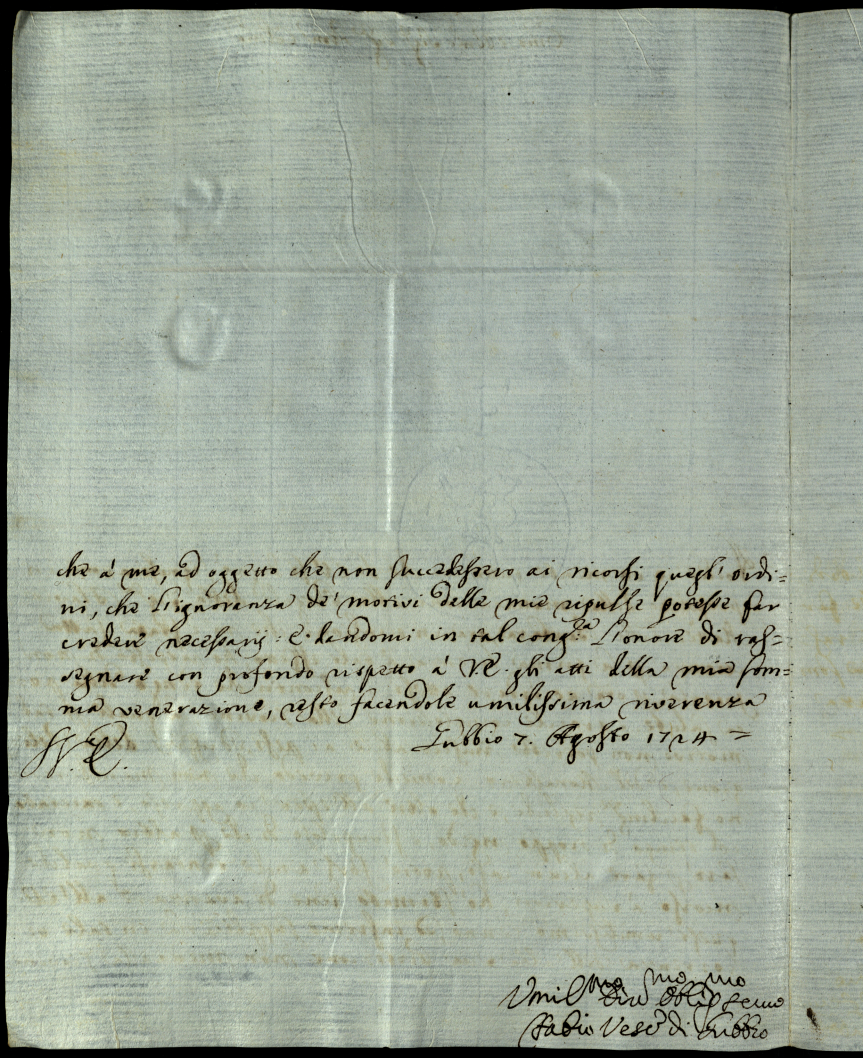 che à me, ad oggetto che non succedessero ai ricorsi quegl' ordi=
ni, che l'ignoranza de' motivi delle mie ripulse potesse far
credere necessarij: E dandomi in tal cong.ra l'onore di ras=
segnare con profondo rispetto à V.E. gli atti della mia som=
ma venerazione, resto facendole umilissima riverenza
Gubbio 7. Agosto 1724 =
V.E.
Umil.mo Div.mo Oblig.mo Servo
Fabio Vesc.o di Gubbio